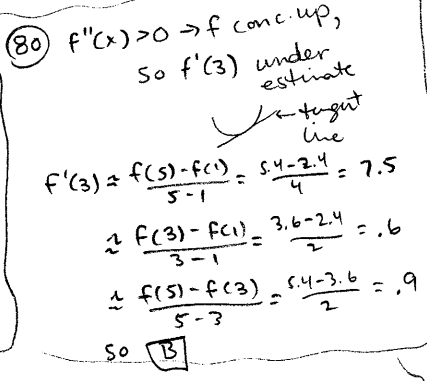 80 f''(x)>0 → f conc. up,
so f'(3) under
estimate
← tangent
line
f'(3) ≈ f(5)-f(1) / 5-1 = 5.4-2.4 / 4 = 7.5
≈ f(3)-f(1) / 3-1 = 3.6-2.4 / 2 = .6
≈ f(5)-f(3) / 5-3 = 5.4-3.6 / 2 = .9
so B